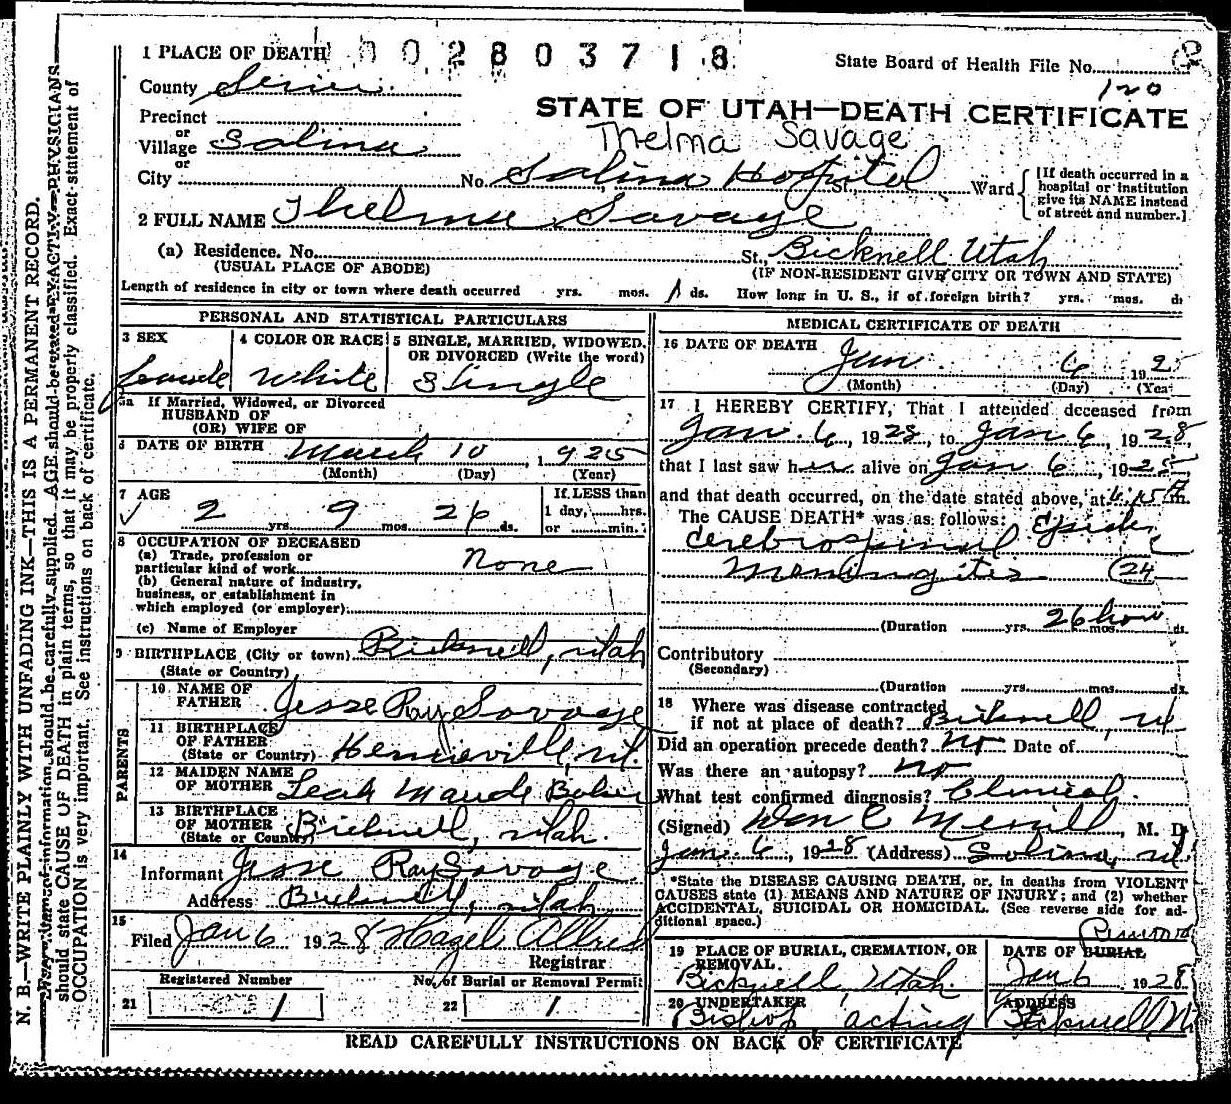 1 PLACE OF DEATH 002803718
State Board of Health File No.
120
County Sevier
STATE OF UTAH—DEATH CERTIFICATE
Precinct
or
Thelma Savage
Village Salina
or
City No. Salina Hospital St., Ward
[If death occurred in a
hospital or institution
give its NAME instead
of street and number.]
2 FULL NAME Thelma Savage
(a) Residence. No. St., Bicknell Utah
(USUAL PLACE OF ABODE) (IF NON-RESIDENT GIVE CITY OR TOWN AND STATE)
Length of residence in city or town where death occurred yrs. mos. 1 ds. How long in U. S., if of foreign birth? yrs. mos. ds
PERSONAL AND STATISTICAL PARTICULARS
3 SEX 4 COLOR OR RACE 5 SINGLE, MARRIED, WIDOWED,
OR DIVORCED (Write the word)
female White Single
5a If Married, Widowed, or Divorced
HUSBAND OF
(OR) WIFE OF
6 DATE OF BIRTH March 10, 1925
(Month) (Day) (Year)
7 AGE If LESS than
2 yrs. 9 mos. 26 ds. 1 day, hrs.
or min.
8 OCCUPATION OF DECEASED
(a) Trade, profession or
particular kind of work None
(b) General nature of industry,
business, or establishment in
which employed (or employer)
(c) Name of Employer
9 BIRTHPLACE (City or town) Bicknell, Utah
(State or Country)
PARENTS
10 NAME OF
FATHER Jesse Ray Savage
11 BIRTHPLACE
OF FATHER
(State or Country) Henrieville, ut.
12 MAIDEN NAME
OF MOTHER Leah Maude Baker
13 BIRTHPLACE
OF MOTHER
(State or Country) Bicknell, Utah.
14
Informant Jesse Ray Savage
Address Bicknell, Utah
15
Filed Jan 6 1928 Hazel Allred
Registrar
Registered Number No. of Burial or Removal Permit
21 1 22 1
MEDICAL CERTIFICATE OF DEATH
16 DATE OF DEATH
Jan. 6 192
(Month) (Day) (Yea
17 I HEREBY CERTIFY, That I attended deceased from
Jan. 6, 1928, to Jan 6, 1928
that I last saw her alive on Jan 6, 192
and that death occurred, on the date stated above, at m.
The CAUSE DEATH* was as follows:
cerebrospinal
meningitis (24
(Duration yrs. 26 hour mos. ds.
Contributory
(Secondary)
(Duration yrs. mos. ds.
18 Where was disease contracted
if not at place of death? Bicknell, ut
Did an operation precede death? no Date of
Was there an autopsy? no
What test confirmed diagnosis? Clinical.
(Signed) Wm E Merrill, M. D
Jan. 6, 1928 (Address) Salina, ut.
*State the DISEASE CAUSING DEATH, or, in deaths from VIOLENT
CAUSES state (1) MEANS AND NATURE OF INJURY; and (2) whether
ACCIDENTAL, SUICIDAL OR HOMICIDAL. (See reverse side for ad-
ditional space.)
19 PLACE OF BURIAL, CREMATION, OR
REMOVAL
Bicknell Utah.
Removal
DATE OF BURIAL
Jan 6 1928
20 UNDERTAKER
Bishop acting
ADDRESS
Bicknell
READ CAREFULLY INSTRUCTIONS ON BACK OF CERTIFICATE
N. B.—WRITE PLAINLY WITH UNFADING INK—THIS IS A PERMANENT RECORD.
Every item of information should be carefully supplied. AGE should be stated EXACTLY. PHYSICIANS
should state CAUSE OF DEATH in plain terms, so that it may be properly classified. Exact statement of
OCCUPATION is very important. See instructions on back of certificate.